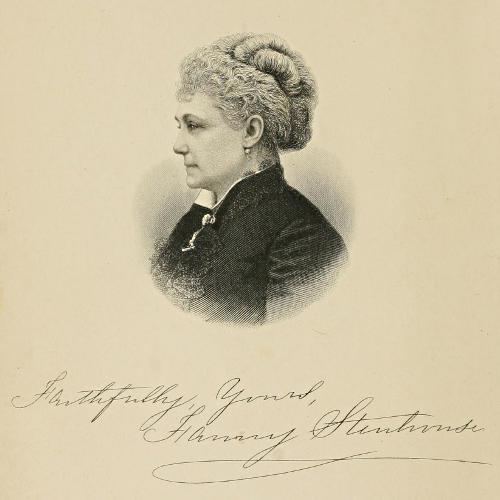 Faithfully, Yours,
Fanny Stenhouse